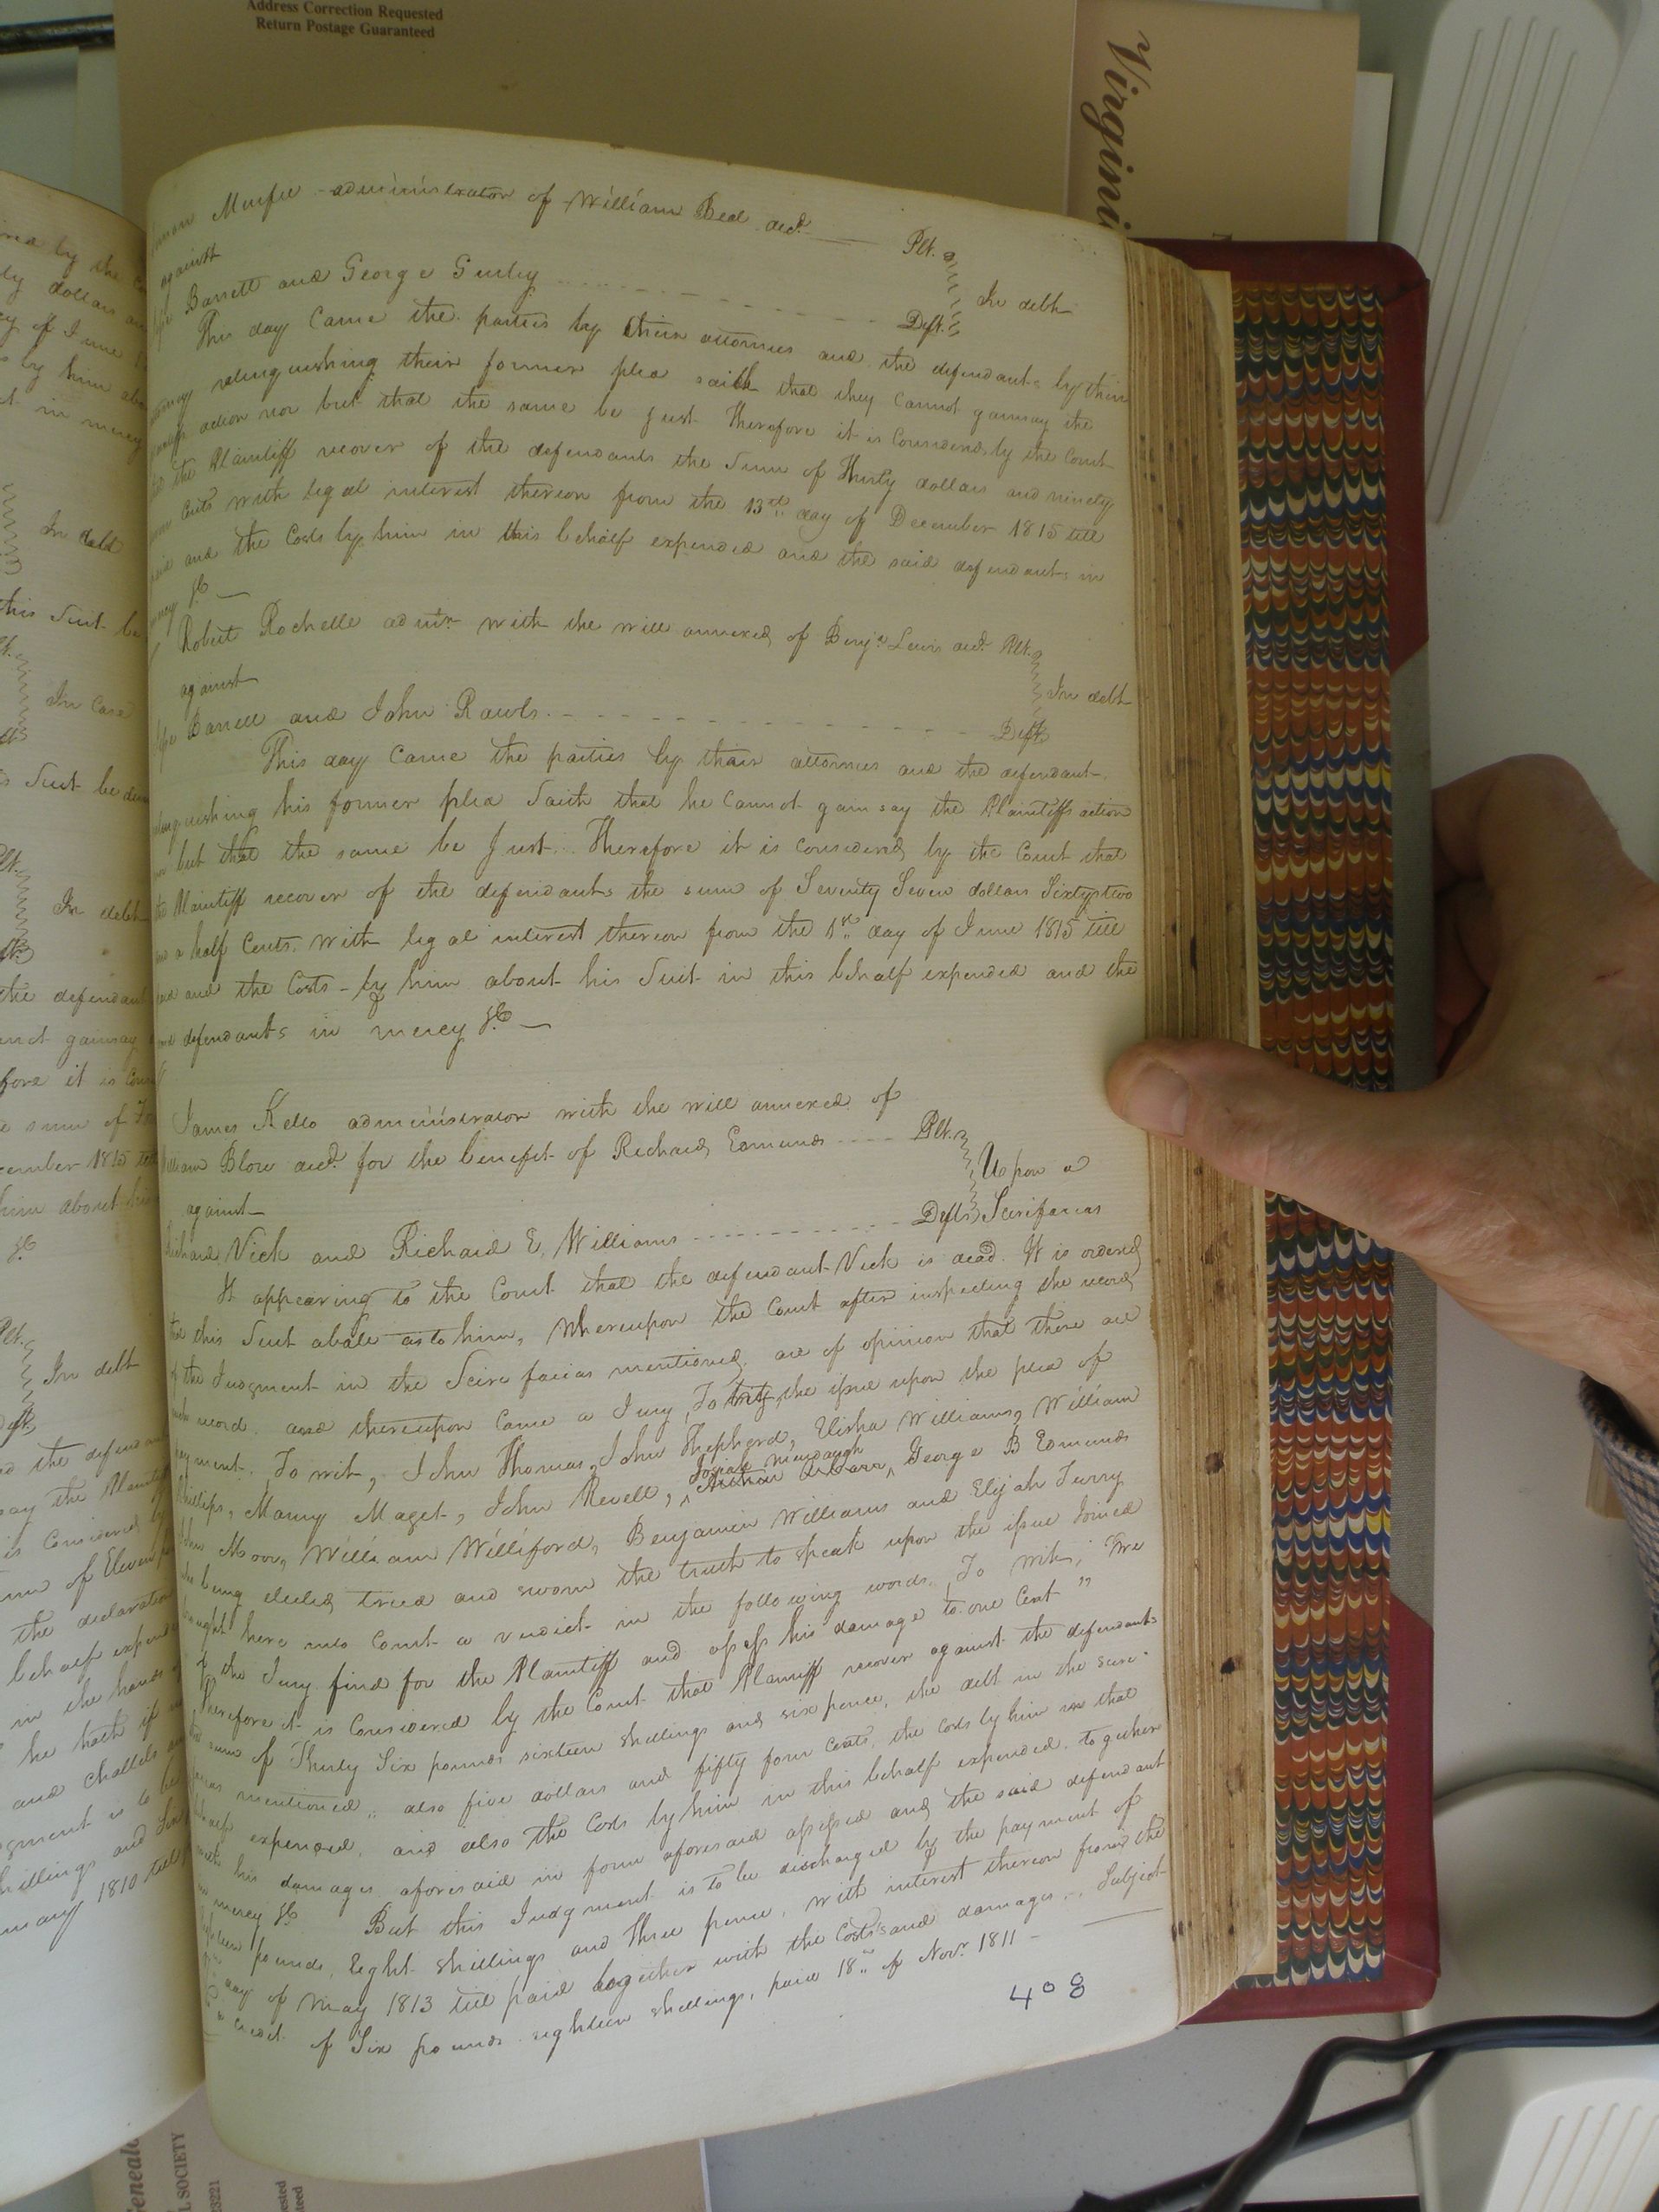 Address Correction Requested
Return Postage Guaranteed
Virgini
administrator of William Beal decd. Plt.
against
Barrett and George Gurley Deft.
In debt
This day Came the parties by their attornies and the defendants by their
relinquishing their former plea saith that they Cannot gainsay the
action nor but that the same be just Therefore it is Considered by the Court
the Plaintiff recover of the defendants the Sum of Thirty dollars and ninety
Cents with legal interest thereon from the 13th day of December 1815 till
and the Costs by him in this behalf expended and the said defendants in
&c
Robert Rochelle admr. with the will annexed of Benja. Lewis decd. Plt.
against
In debt
Barrett and John Rawls Deft
This day Came the parties by their attornies and the defendant
relinquishing his former plea Saith that he Cannot gainsay the Plaintiffs action
nor but that the same be Just. Therefore it is Considered by the Court that
the Plaintiff recover of the defendants the sum of Seventy Seven dollars Sixty two
and a half Cents. with legal interest thereon from the 1st. day of June 1815 till
paid and the Costs by him about his Suit in this behalf expended and the
said defendants in mercy &c
James Kello administrator with the will annexed of
William Blow decd. for the benefit of Richard Edmunds Plt.
against
Upon a
Scirifacias
Richard Vick and Richard E. Williams Defts
It appearing to the Court that the defendant Vick is dead. It is ordered
that this Suit abate as to him, Whereupon the Court after inspecting the record
of the Judgment in the Scire facias mentioned, are of opinion that there are
such record. and thereupon Came a Jury, To try the issue upon the plea of
payment. To wit, John Thomas, John Shepherd, Elisha Williams, William
Phillips, Manry Maget, John Revell, Josiah Mendaugh, George B Edmunds
John Moor, William Williford, Benjamin Williams and Elijah Turry
who being elected tried and sworn the truth to speak upon the issue Joined
brought here into Court a verdict in the following words. To wit; "We
of the Jury find for the Plaintiff and assess his damage to one Cent"
Therefore it is Considered by the Court that Plaintiff recover against the defendants
the sum of Thirty Six pounds sixteen shillings and six pence, the debt in the scire
facias mentioned, also five dollars and fifty four Cents, the costs by him in that
behalf expended, and also the Costs by him in this behalf expended. together
with his damages aforesaid in form aforesaid assessed and the said defendant
in mercy &c But this Judgment is to be discharged by the payment of
pounds, Eight Shillings and three pence, with interest thereon from the
day of May 1813 till paid together with the Costs and damages. Subject
to a credit of Six pounds eighteen shillings, paid 18th of Novr. 1811
408
In debt
this Suit be
In Case
Suit be
In debt
the defendant
gainsay
fore it is
sum of
ember 1815
him about
&c
In debt
the defend
say the
is Considered
sum of Eleven
the declaration
behalf
in the hands
he hath
and chattels
SOCIETY
23221